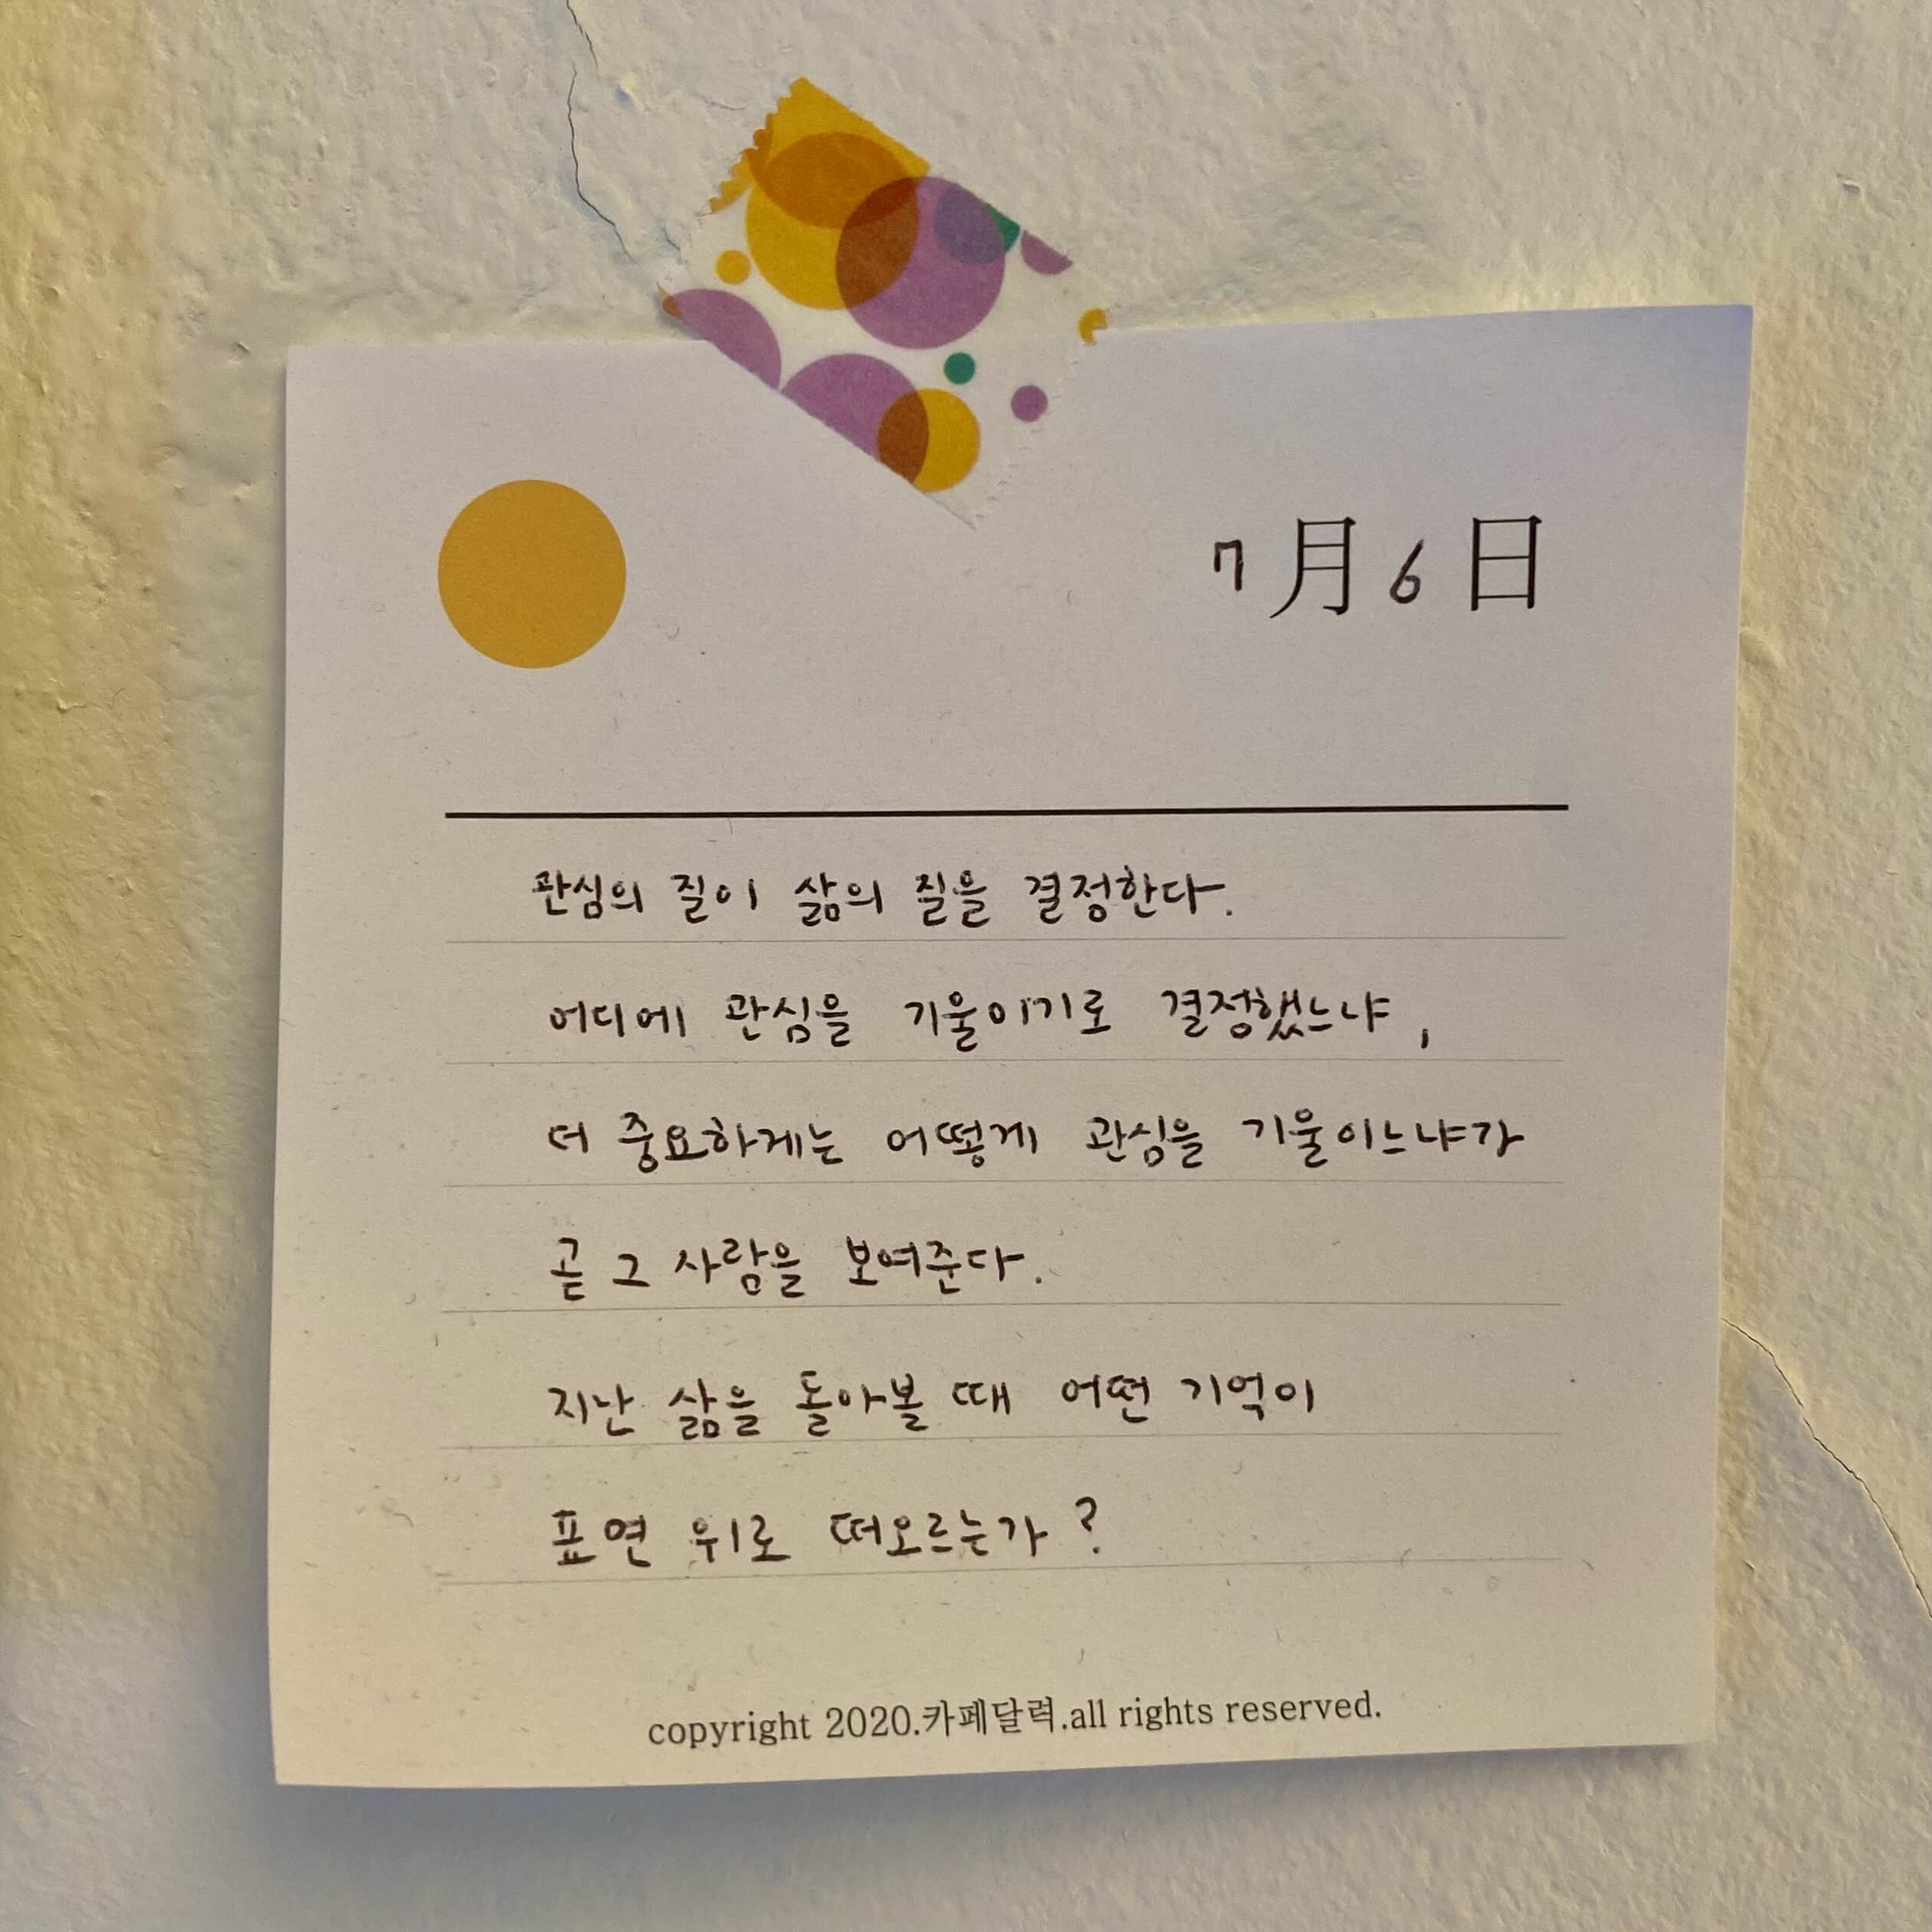 7月6日
관심의 질이 삶의 질을 결정한다.
어디에 관심을 기울이기로 결정했느냐,
더 중요하게는 어떻게 관심을 기울이느냐가
곧 그 사람을 보여준다.
지난 삶을 돌아볼 때 어떤 기억이
표면 위로 떠오르는가?
copyright 2020.카페달력.all rights reserved.